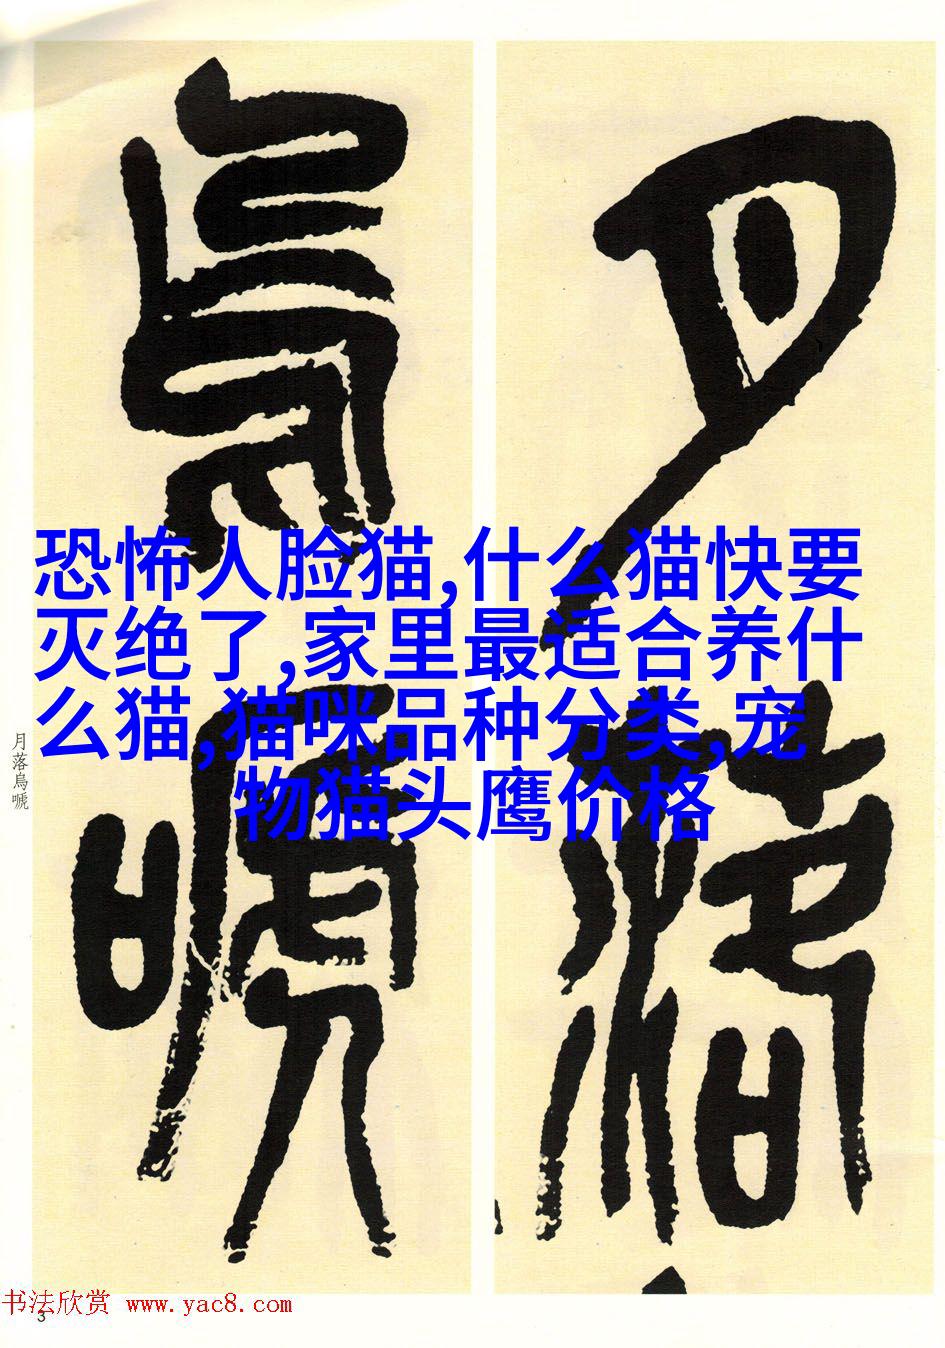 月落
烏嗁
恐怖人脸猫,什么猫快要
灭绝了,家里最适合养什
么猫,猫咪品种分类,宠
物猫头鹰价格
月落烏嗁
书法欣赏 www.yac8.com
3